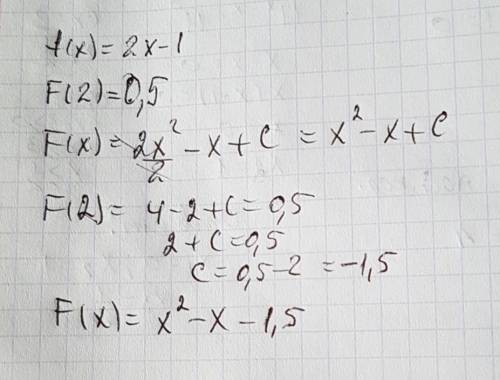 f(x)=2x-1
F(2)=0,5
F(x)=2x²/2-x+C=x²-x+C
F(2)=4-2+C=0,5
2+C=0,5
C=0,5-2=-1,5
F(x)=x²-x-1,5